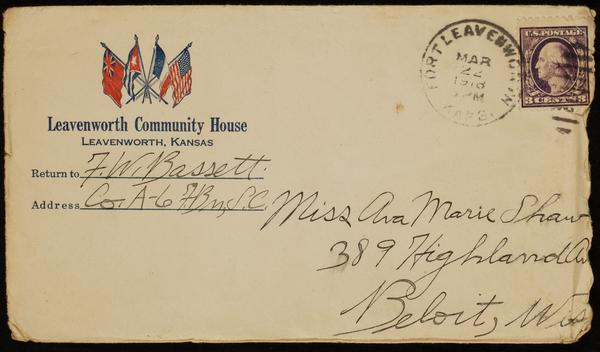 Leavenworth Community House
LEAVENWORTH, KANSAS
Return to F. W. Bassett.
Address Co. A-6 F. Bn, S.C.
FORT LEAVENWORTH
MAR
22
1918
PM
KANS.
U.S. POSTAGE
3 CENTS 3
Miss Ava Marie Shaw
389 Highland Av
Beloit, Wis